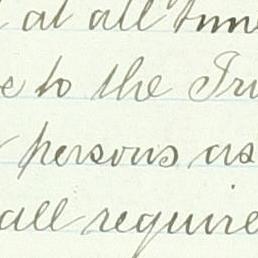 at all time
e to the Tru
persons as
all require